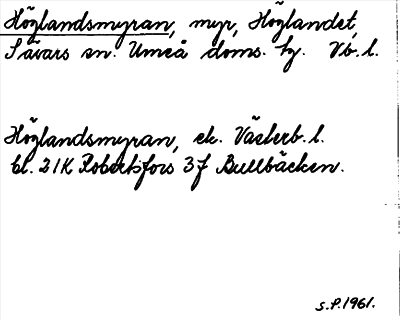 Höglandsmyran, myr, Höglandet,
Sävars sn. Umeå doms. hg. Vb. l.
Höglandsmyran, ek. Västerb. l.
bl. 21K Robertsfors 3f Bullbäcken.
S.P. 1961.